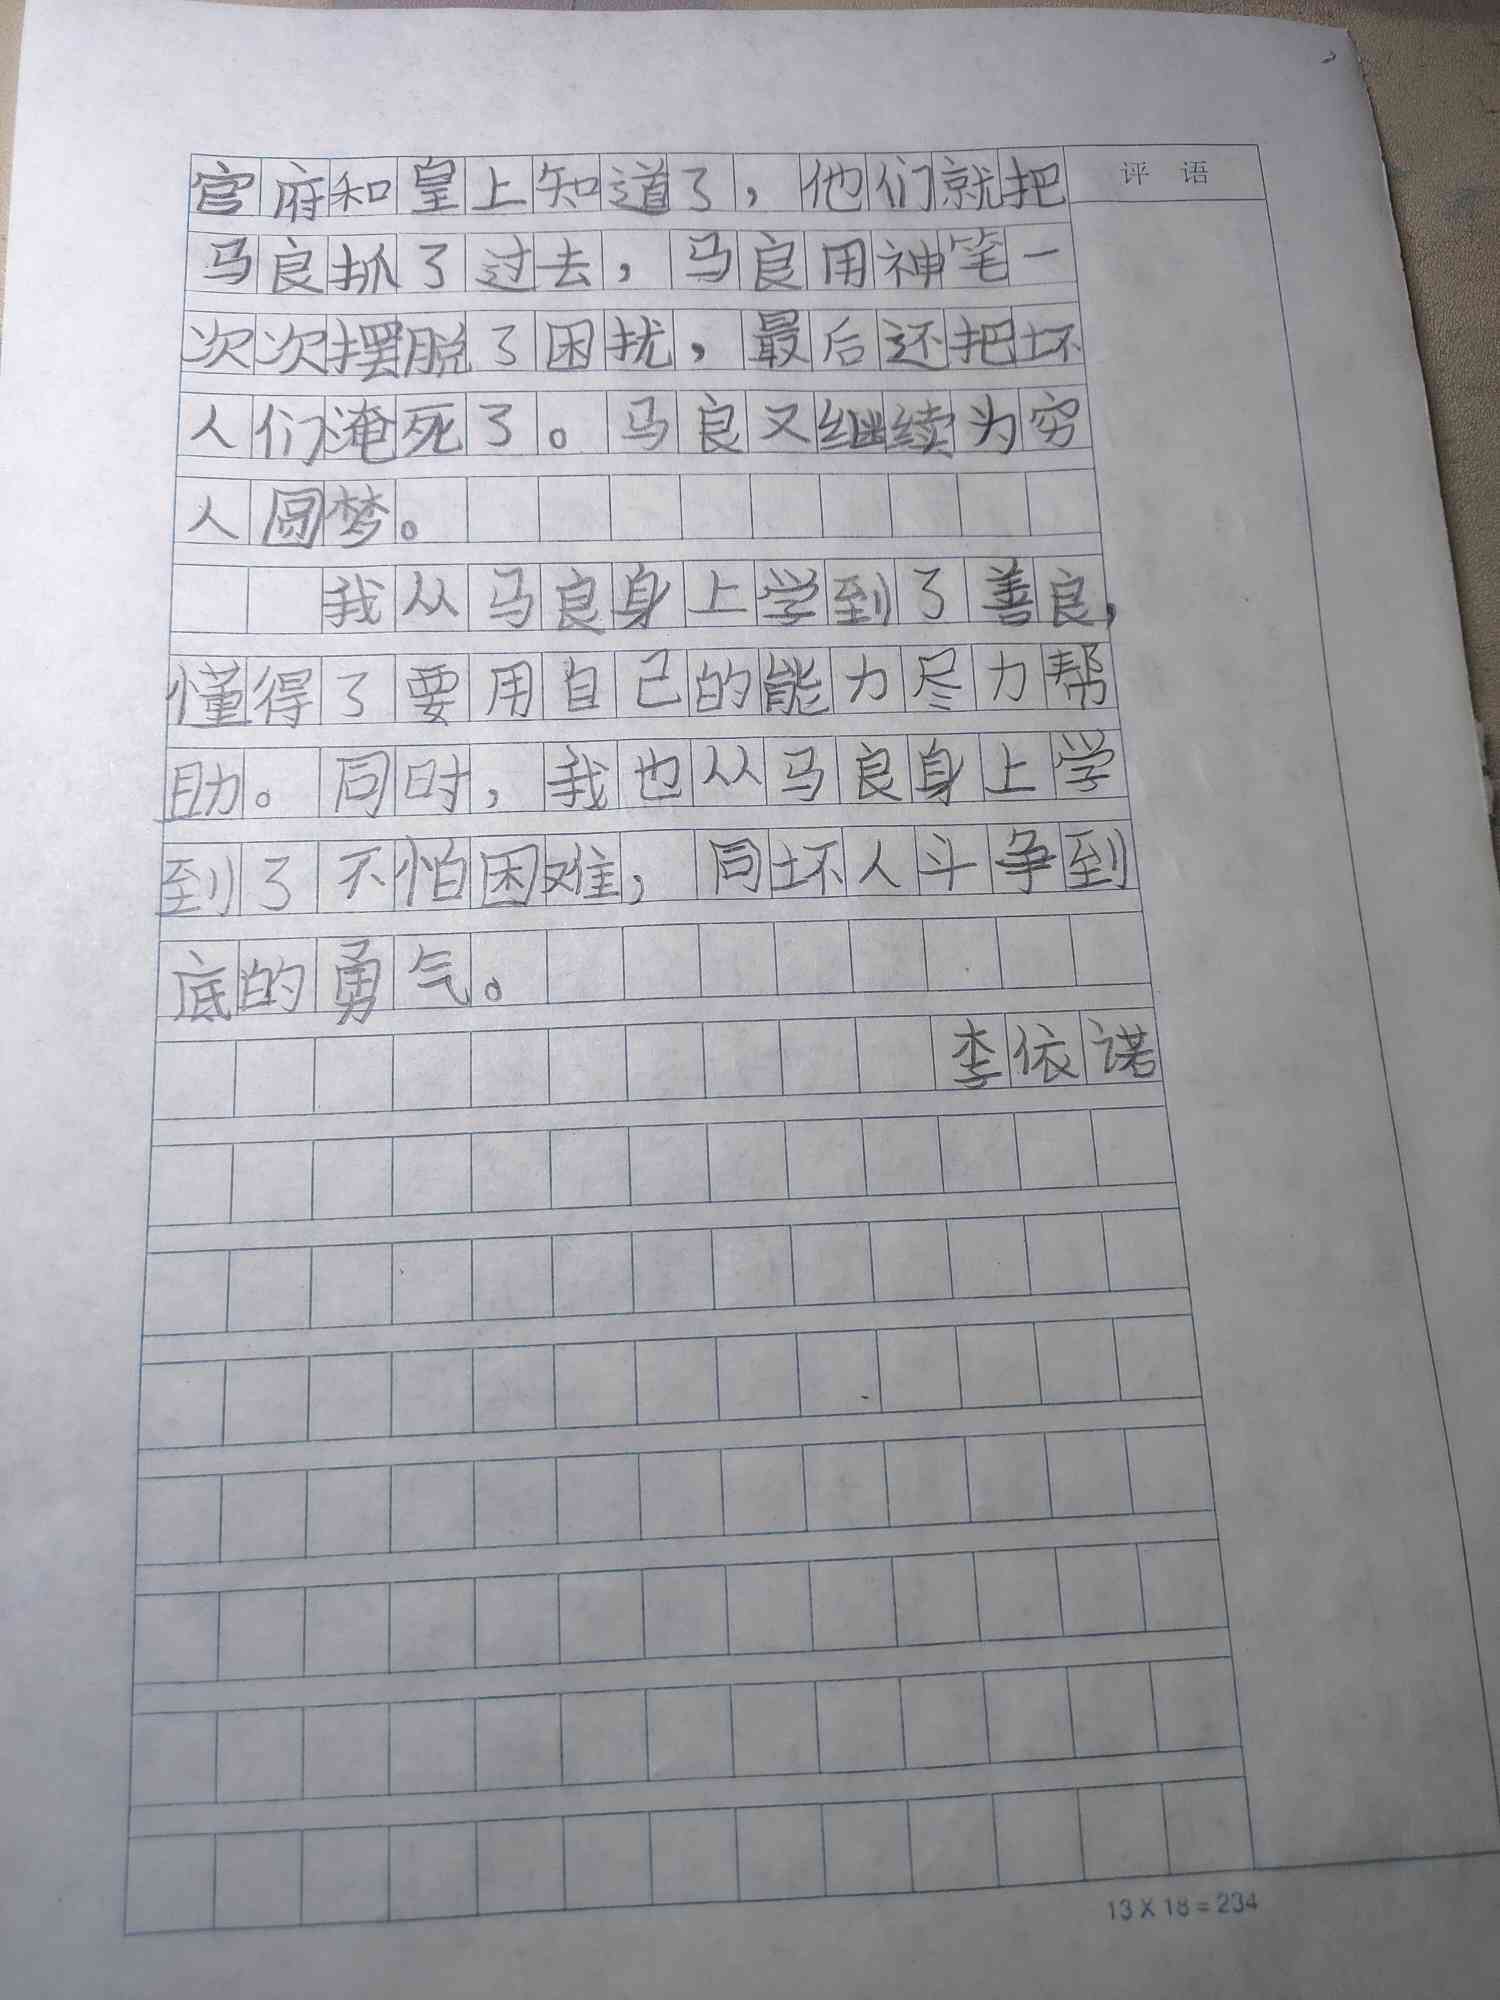 评 语
官府和皇上知道了，他们就把
马良抓了过去，马良用神笔一
次次摆脱了困扰，最后还把坏
人们淹死了。马良又继续为穷
人圆梦。
我从马良身上学到了善良，
懂得了要用自己的能力尽力帮
助。同时，我也从马良身上学
到了不怕困难，同坏人斗争到
底的勇气。
李依诺
13 X 18 = 234